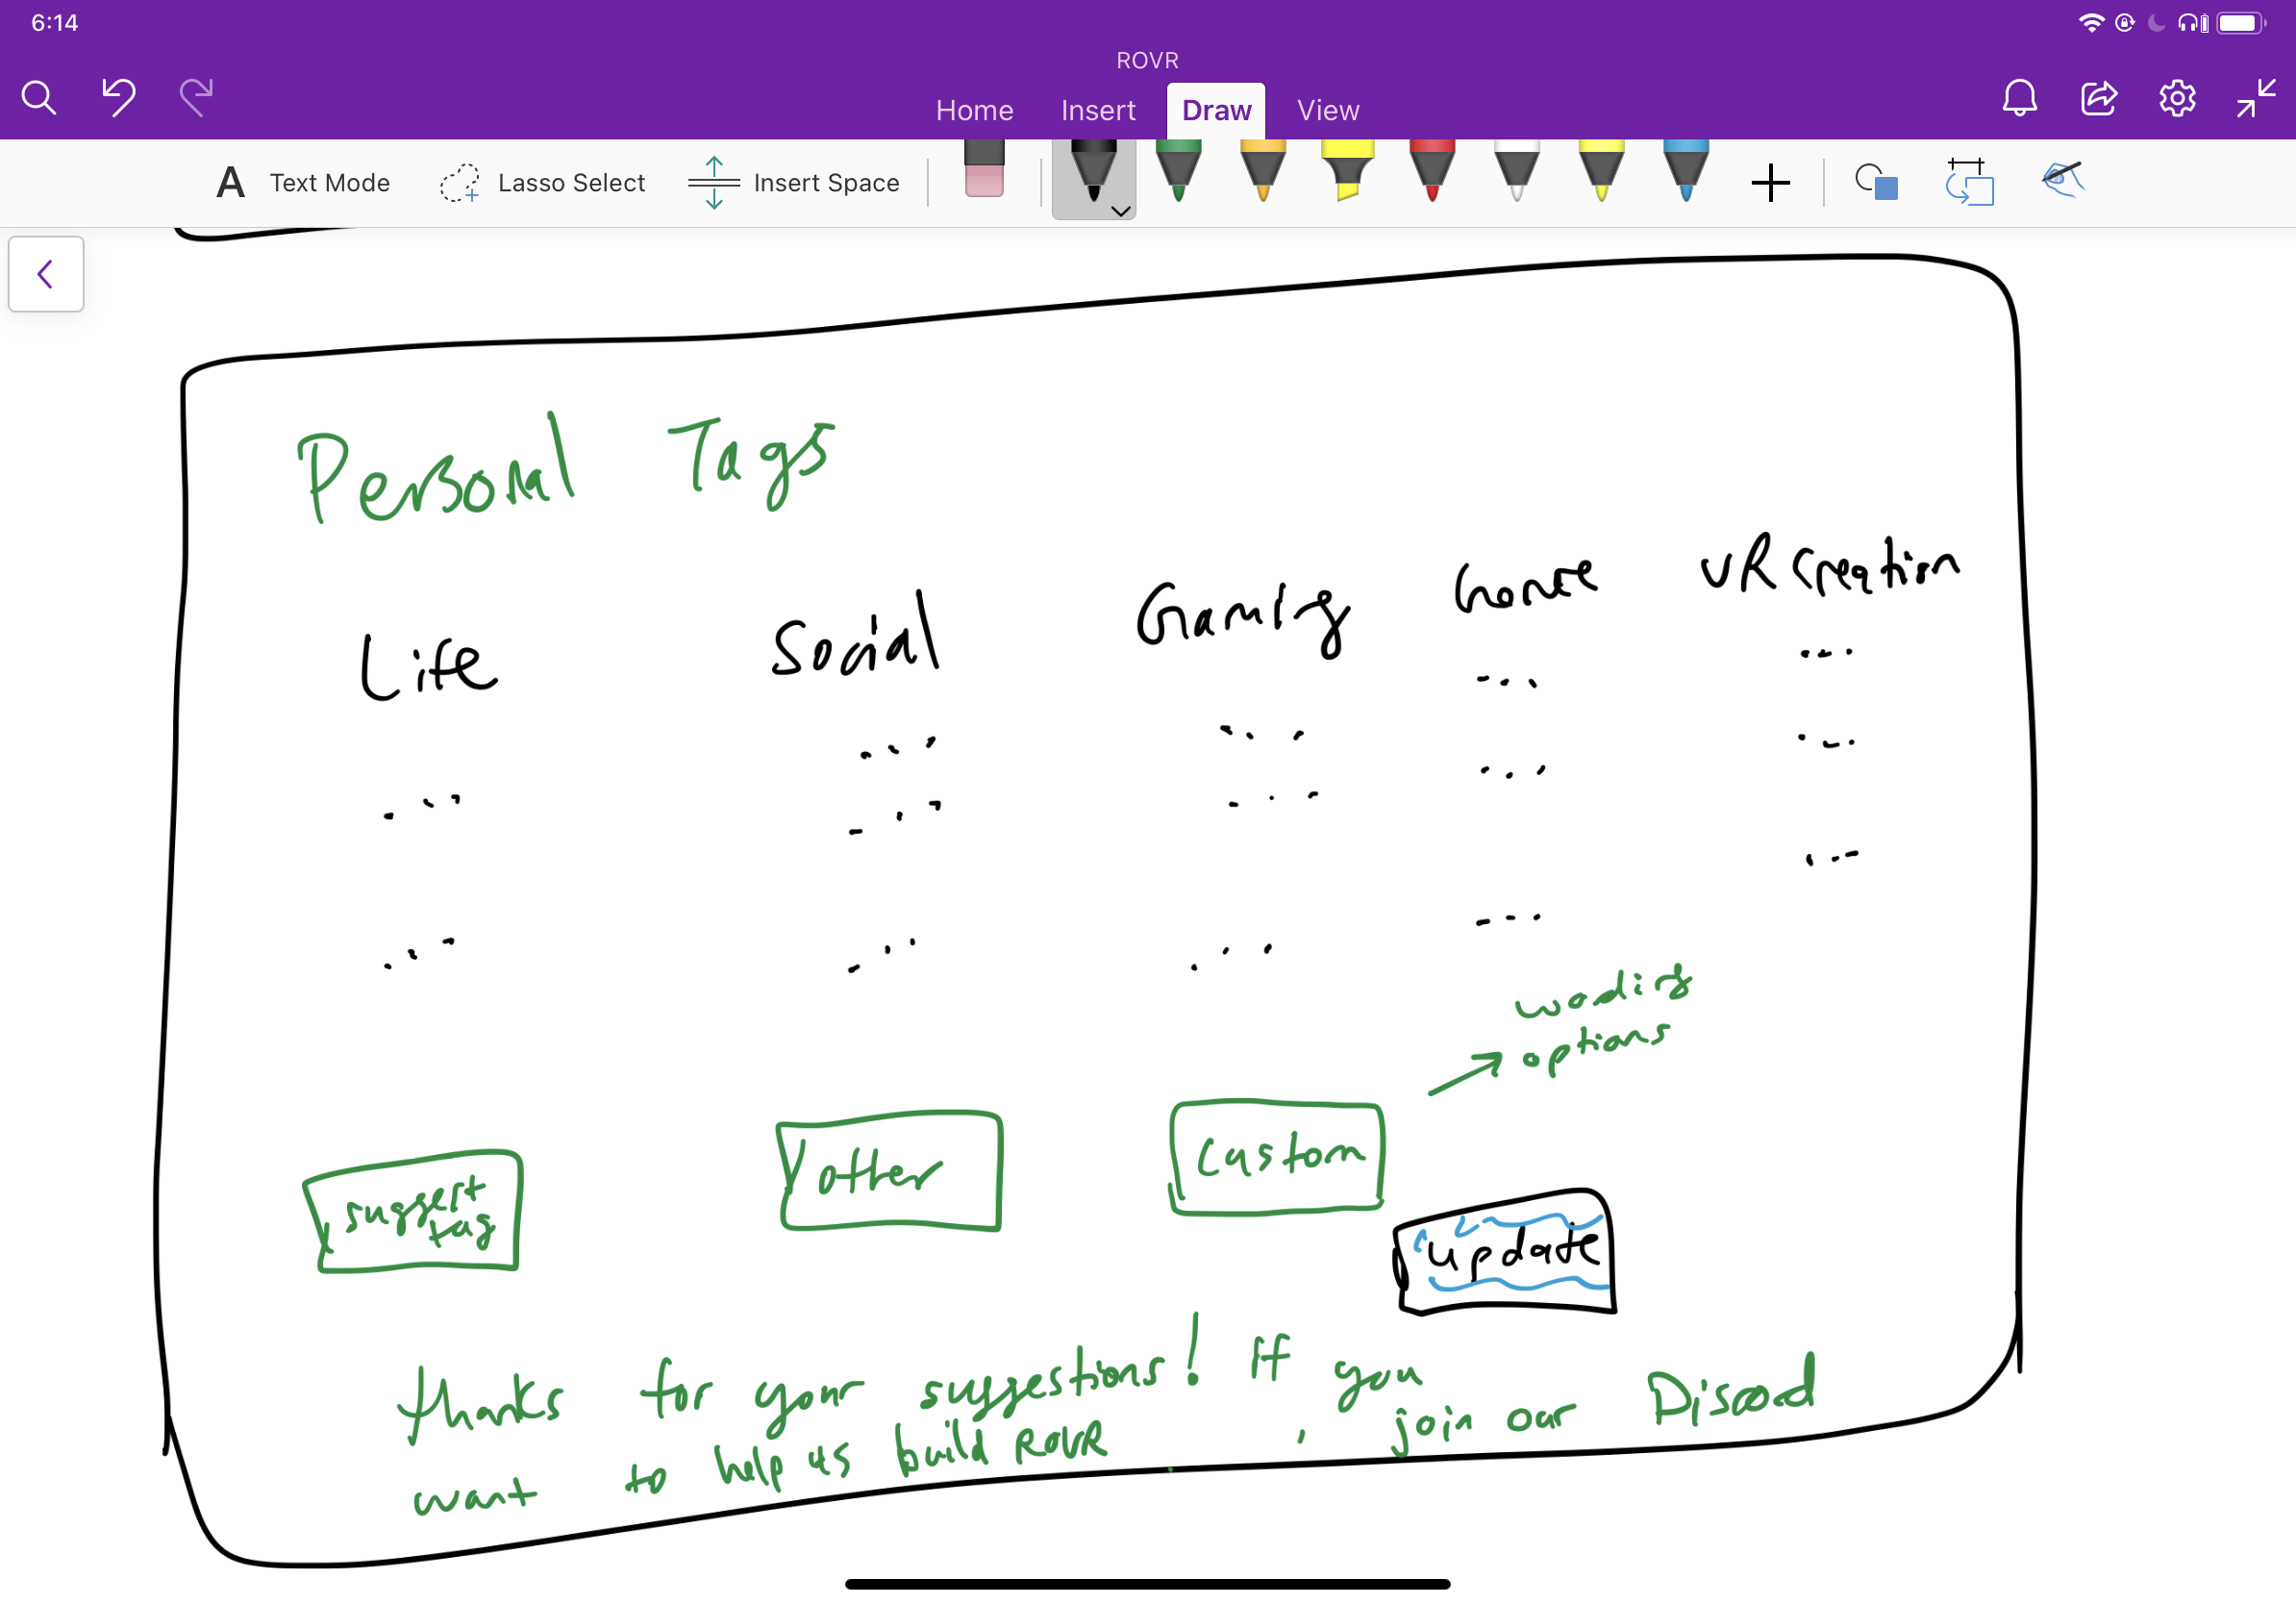 6:14
ROVR
Home Insert Draw View
A Text Mode Lasso Select Insert Space
Personal Tags
Life Social Gaming Genre VR Creation
... ... ... ... ...
... ... ... ... ...
... ... ... ... ...
wording
options
suggest
tag
other
custom
update
thanks for your suggestions! If you
want to help us build ROVR, join our Discord